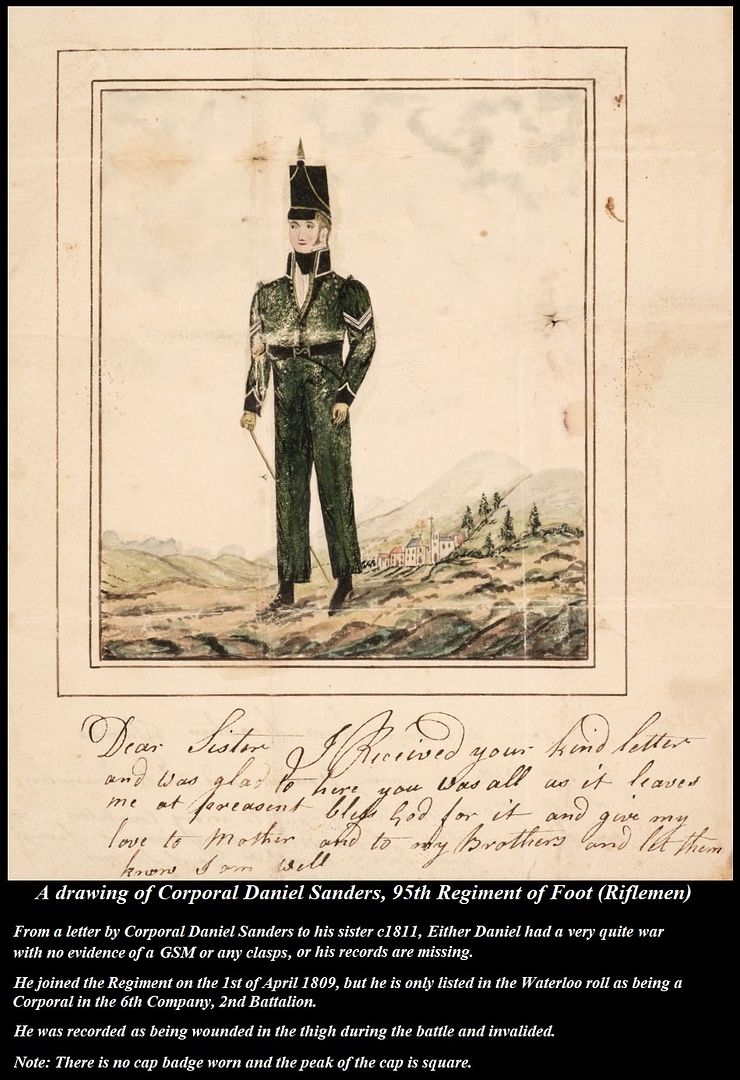 Dear Sister I Received your kind letter
and was glad to here you was all as it leaves
me at preasent bless God for it and give my
love to Mother and to my Brothers and let them
know I am well
A drawing of Corporal Daniel Sanders, 95th Regiment of Foot (Riflemen)
From a letter by Corporal Daniel Sanders to his sister c1811, Either Daniel had a very quite war
with no evidence of a GSM or any clasps, or his records are missing.
He joined the Regiment on the 1st of April 1809, but he is only listed in the Waterloo roll as being a
Corporal in the 6th Company, 2nd Battalion.
He was recorded as being wounded in the thigh during the battle and invalided.
Note: There is no cap badge worn and the peak of the cap is square.